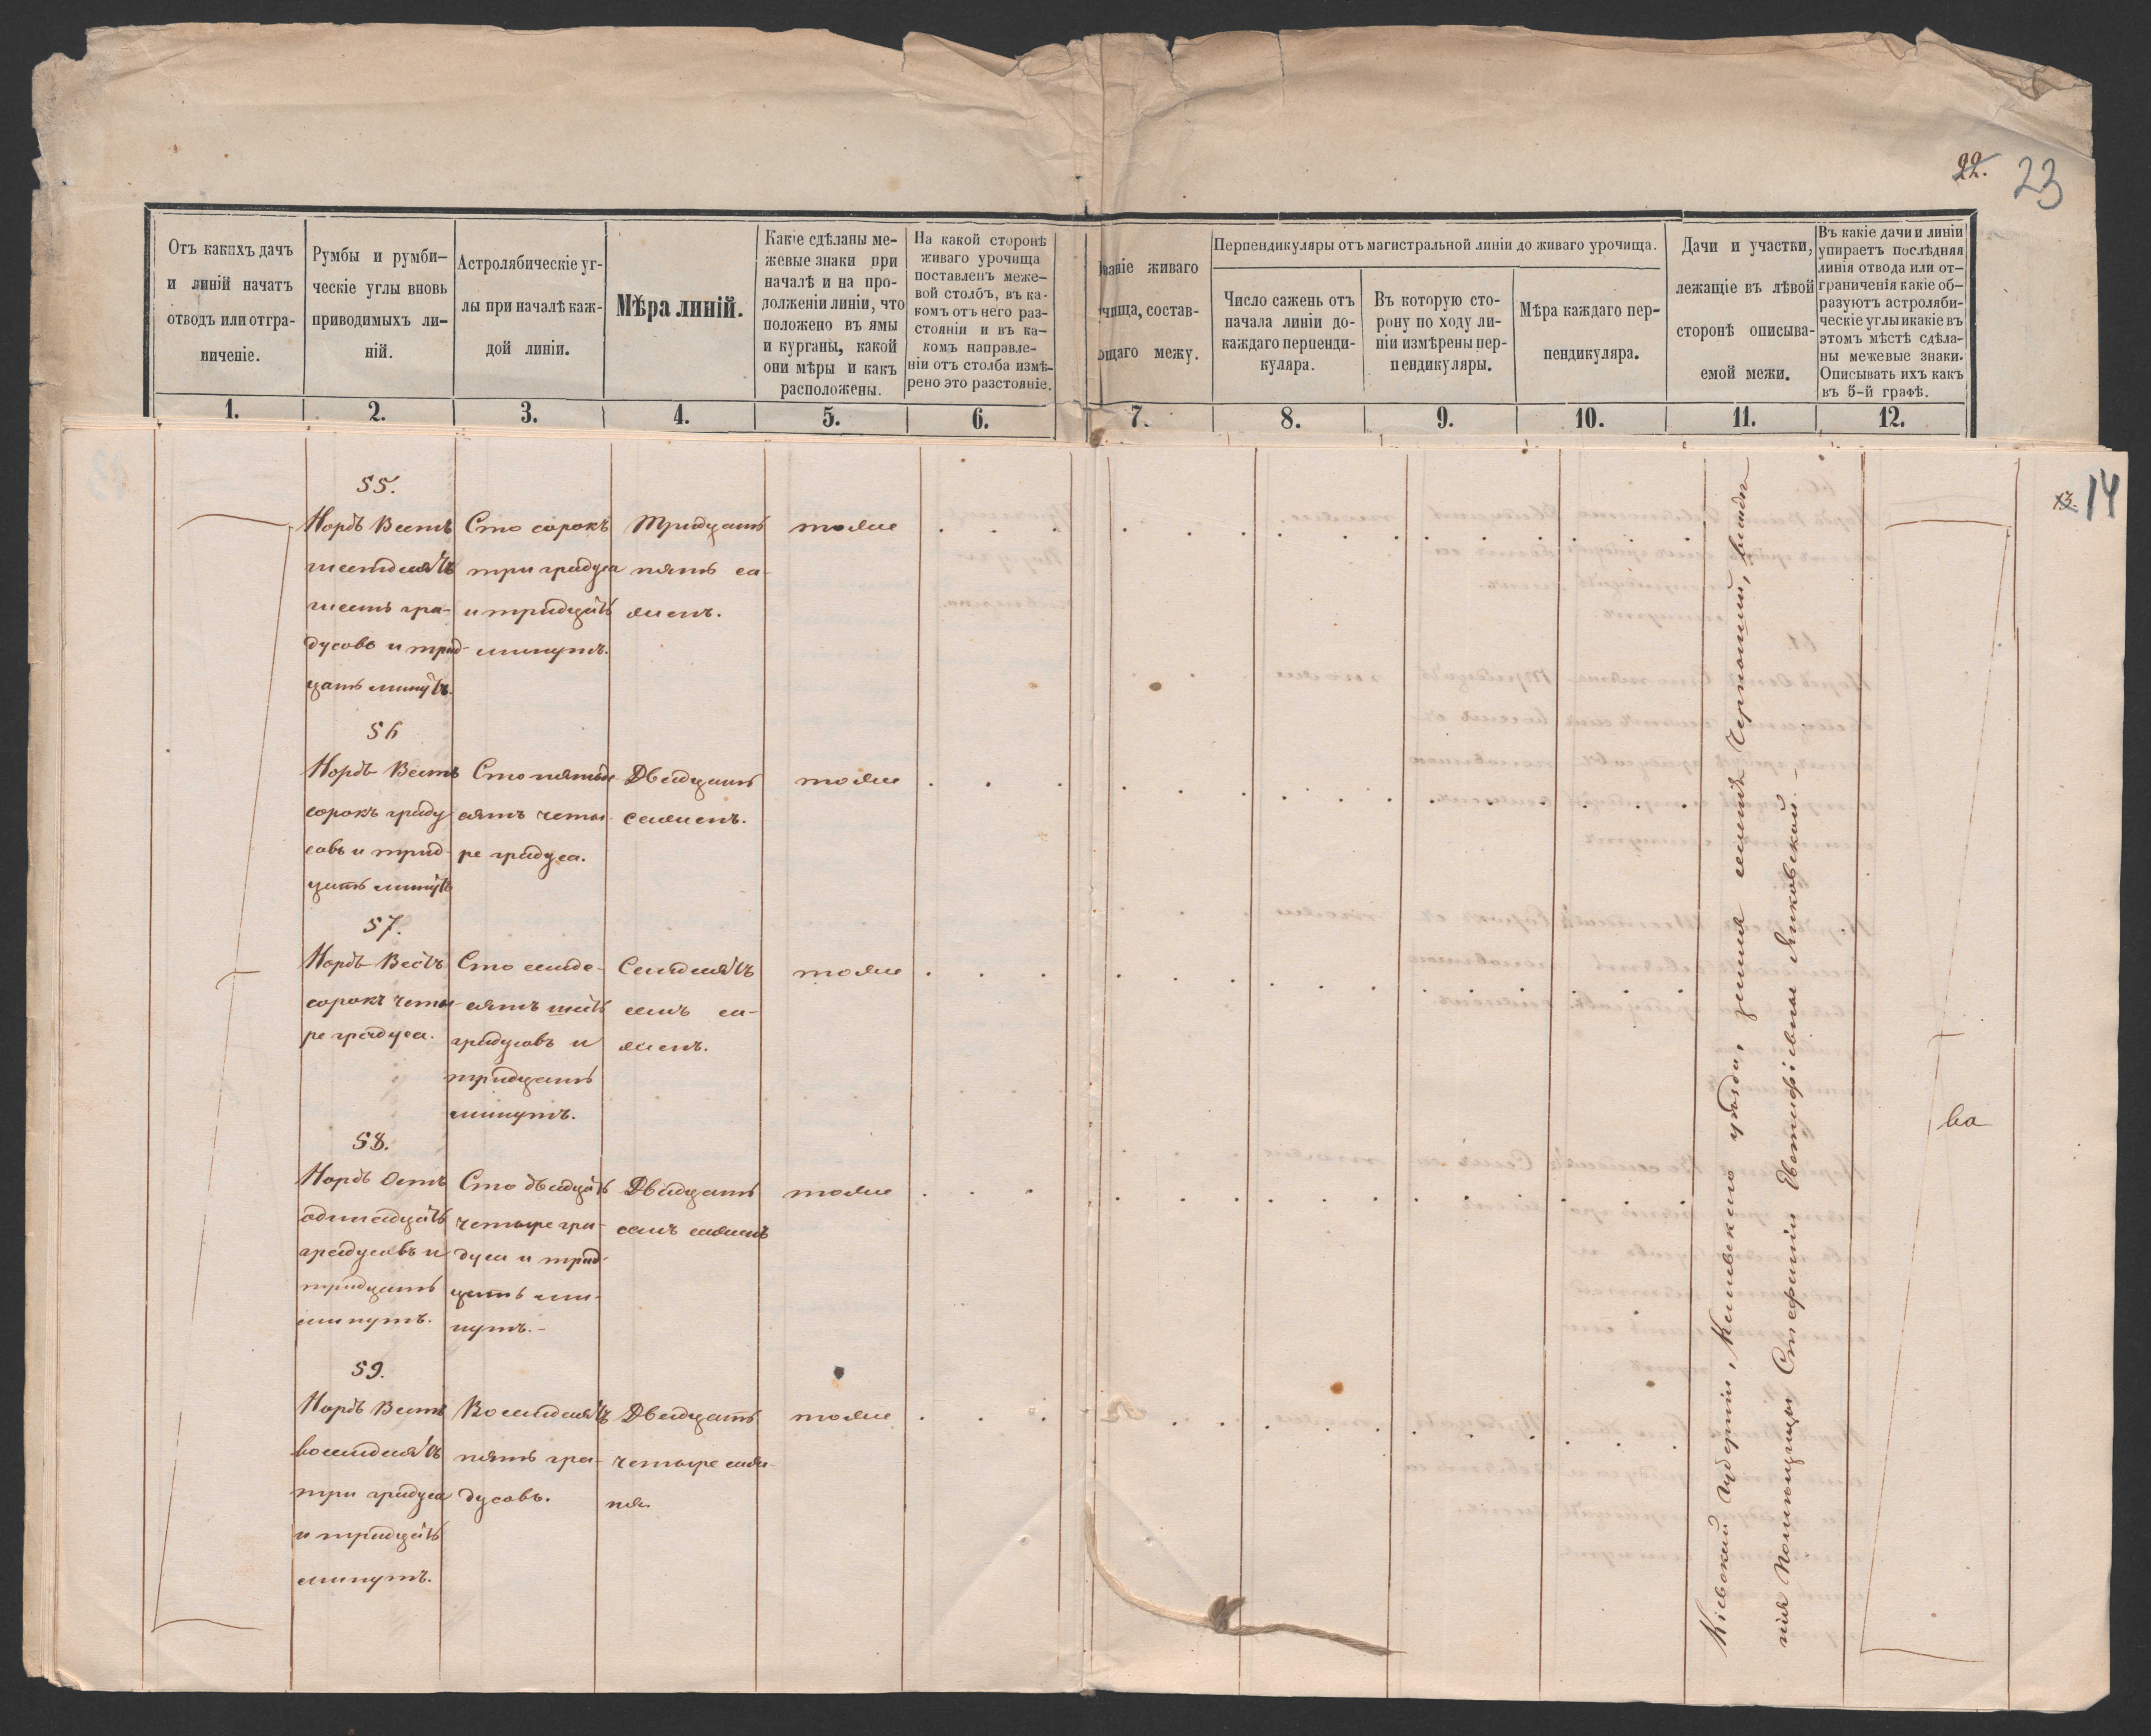 22. 23
Отъ какихъ дачъ
и линій начатъ
отводъ или отгра-
ниченіе.
Румбы и румби-
ческіе углы вновь
приводимыхъ ли-
ній.
Астролябическіе уг-
лы при началѣ каж-
дой линіи.
Мѣра линій.
Какіе сдѣланы ме-
жевые знаки при
началѣ и на про-
долженіи линіи, что
положено въ ямы
и курганы, какой
они мѣры и какъ
расположены.
На какой сторонѣ
живаго урочища
поставленъ меже-
вой столбъ, въ ка-
комъ отъ него раз-
стояніи и въ ка-
комъ направле-
ніи отъ столба измѣ-
рено это разстояніе.
ваніе живаго
чища, состав-
ющаго межу.
Перпендикуляры отъ магистральной линіи до живаго урочища.
Число сажень отъ
начала линіи до-
каждаго перпенди-
куляра.
Въ которую сто-
рону по ходу ли-
ніи измѣрены пер-
пендикуляры.
Мѣра каждаго пер-
пендикуляра.
Дачи и участки,
лежащіе въ лѣвой
сторонѣ описыва-
емой межи.
Въ какіе дачи и линіи
упираетъ послѣдняя
линія отвода или от-
граниченія какіе об-
разуютъ астроляби-
ческіе углы и какіе въ
этомъ мѣстѣ сдѣла-
ны межевые знаки.
Описывать ихъ какъ
въ 5-й графѣ.
1. 2. 3. 4. 5. 6. 7. 8. 9. 10. 11. 12.
13. 14
55.
Нордъ Вестъ
шестдесятъ
шесть гра-
дусовъ и трид-
цать минутъ.
Сто сорокъ
три градуса
и тридцать
минутъ.
Тридцать
пять са-
женъ.
тоже
56
Нордъ Вестъ
сорокъ граду
совъ и трид-
цать минутъ
Сто пятьде-
сятъ четы-
ре градуса.
Двадцать
саженъ.
тоже
57.
Нордъ Вестъ
сорокъ четы-
ре градуса.
Сто семде-
сятъ шесть
градусовъ и
тридцать
минутъ.
Семдесятъ
семъ са-
женъ.
тоже
58.
Нордъ Остъ
одинадцать
градусовъ и
тридцать
минутъ.
Сто двадцать
четыре гра-
дуса и трид-
цать ми-
нутъ.-
Двадцать
семъ саженъ
тоже
59.
Нордъ Вестъ
восемдесятъ
три градуса
и тридцать
минутъ.
Восемдесятъ
пять гра-
дусовъ.
Двадцать
четыре саже-
ня.
тоже
Кіевской губерніи, Кіевскаго уѣзда, земля
нія Помѣщицы Стефаніи
ва